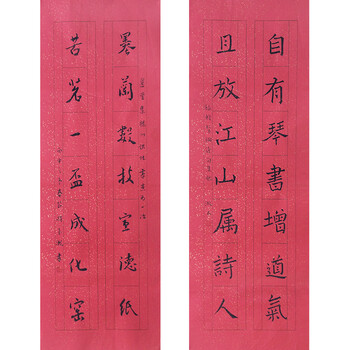 自有琴書增道氣
且放江山属詩人
墨蘭數枝宣德紙
苦茗一盃成化窯